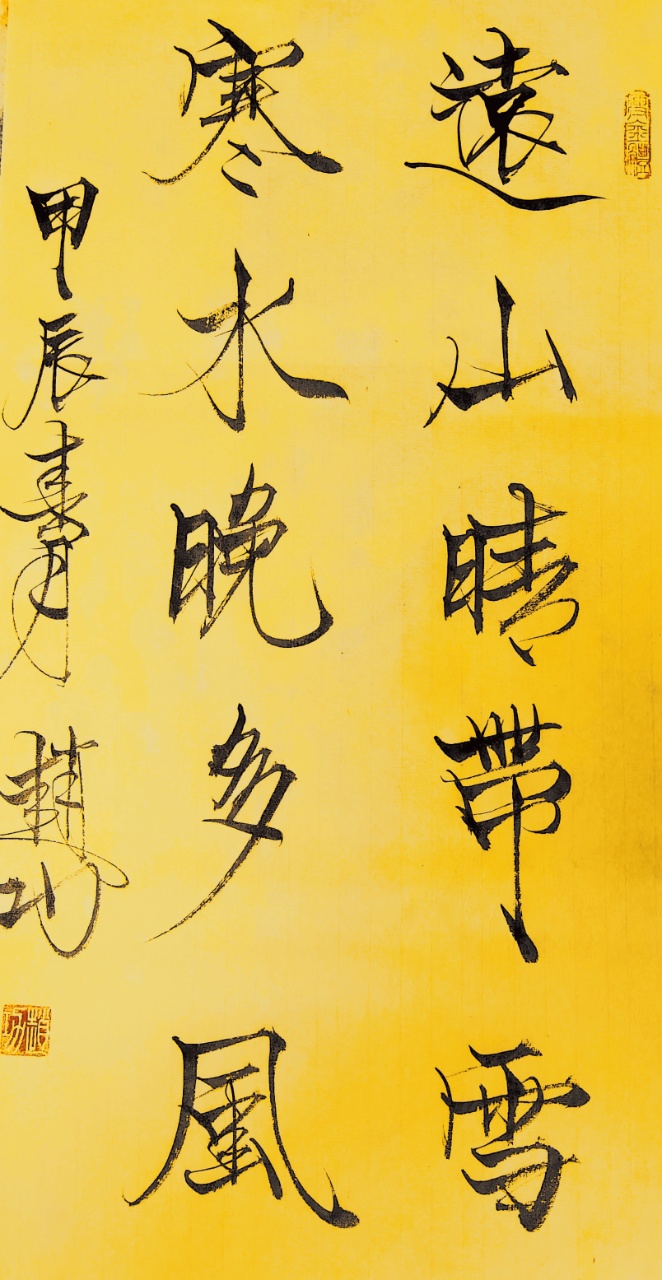 遠山晴帶雪
寒水晚多風
甲辰春月 趙功